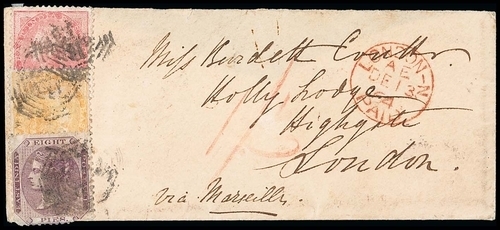 Miss Burdett Coutts.
Holly Lodge
Highgate
London.
via Marseilles.
LONDON-N
AE
DE 12
PAID
EIGHT
EAST INDIA
PIES